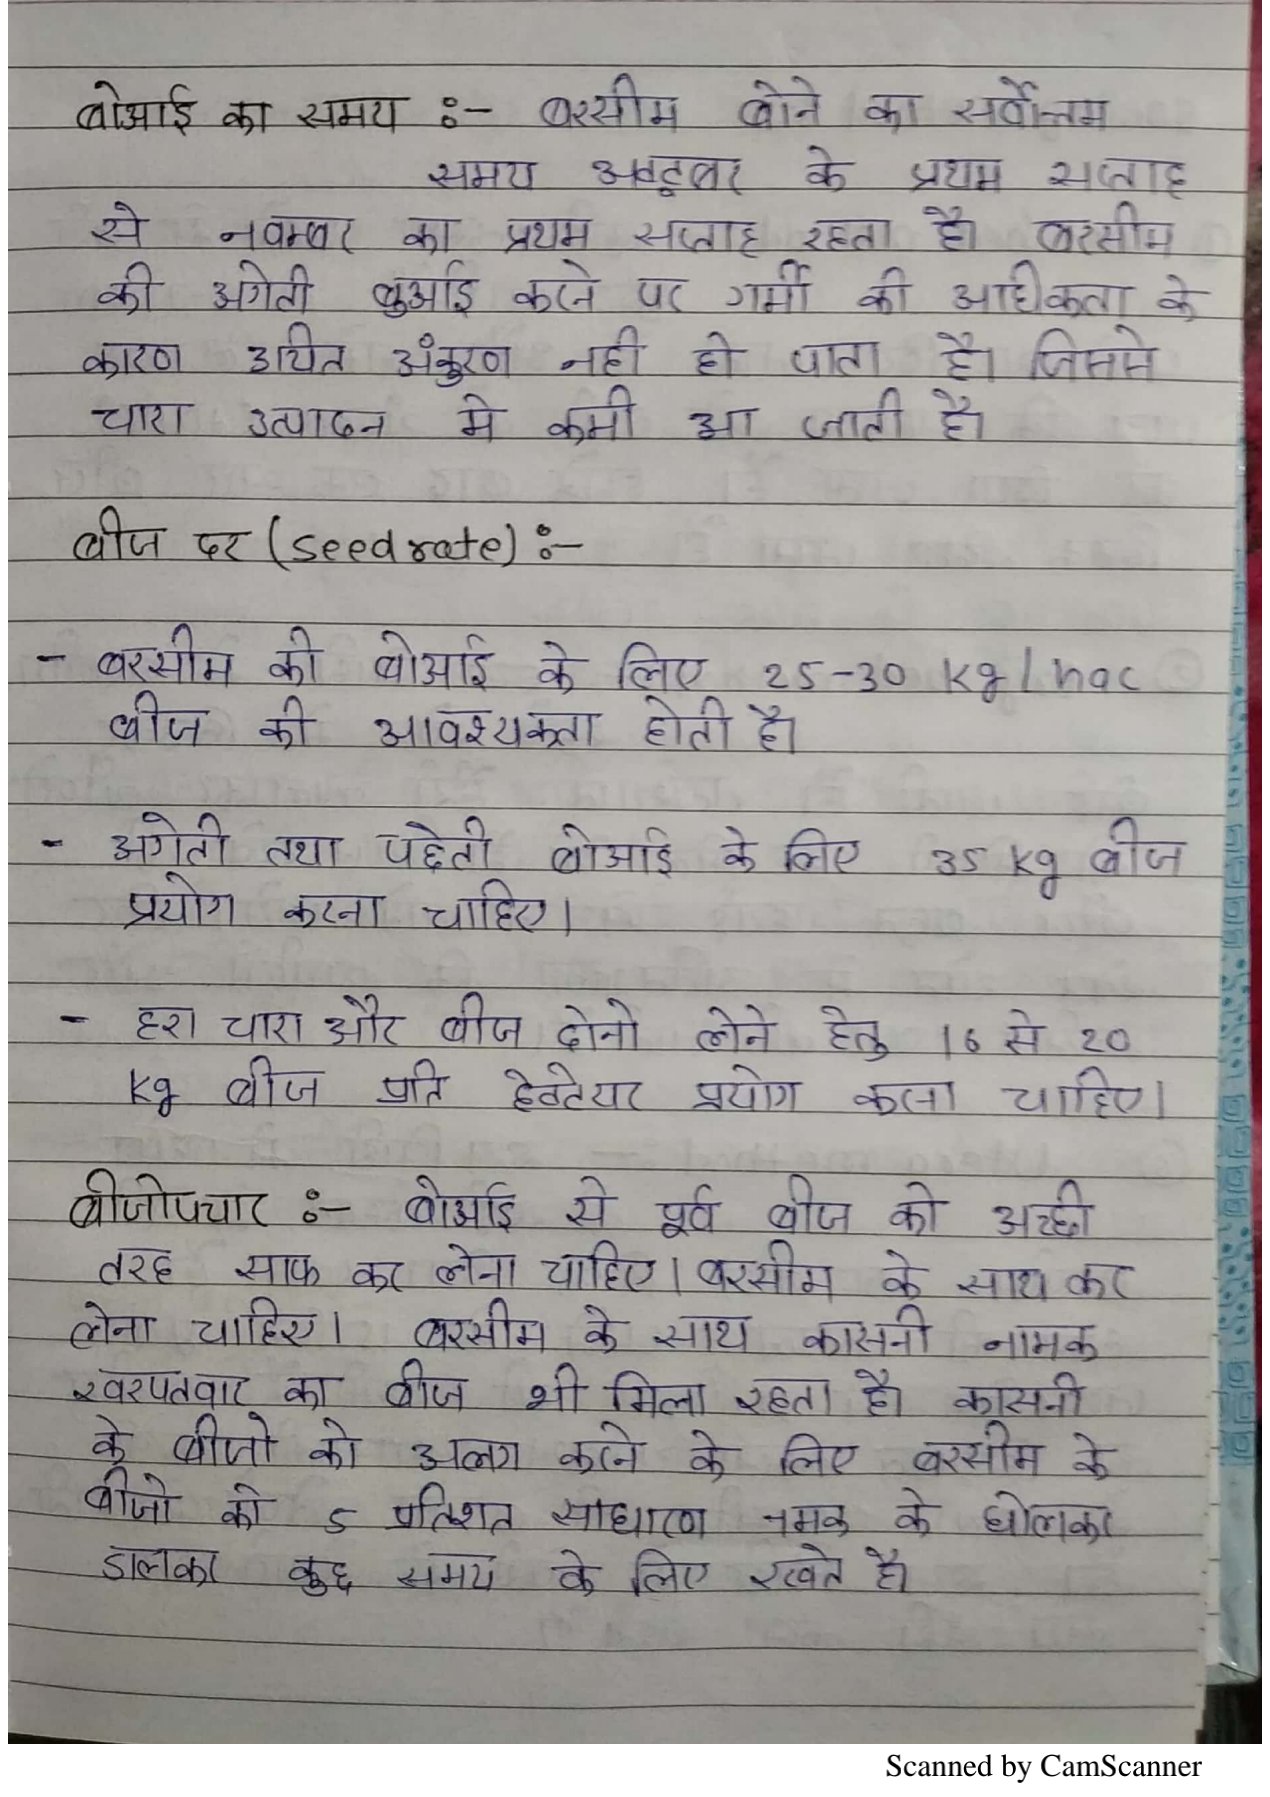 बोआई का समय :- बरसीम बोने का सर्वोत्तम
समय अक्टूबर के प्रथम सप्ताह
से नवम्बर का प्रथम सप्ताह रहता है। बरसीम
की अगेती बुआई करने पर गर्मी की अधिकता के
कारण उचित अंकुरण नही हो पाता है। जिससे
चारा उत्पादन मे कमी आ जाती है।
बीज दर (seed rate) :-
- बरसीम की बोआई के लिए 25-30 kg/hac
बीज की आवश्यकता होती है।
- अगेती तथा पछेती बोआई के लिए 35 kg बीज
प्रयोग करना चाहिए।
- हरा चारा और बीज दोनो लेने हेतु 16 से 20
kg बीज प्रति हेक्टेयर प्रयोग करना चाहिए।
बीजोपचार :- बोआई से पूर्व बीज को अच्छी
तरह साफ कर लेना चाहिए। बरसीम के साथ कर
लेना चाहिए। बरसीम के साथ कासनी नामक
खरपतवार का बीज भी मिला रहता है। कासनी
के बीजो को अलग करने के लिए बरसीम के
बीजो को 5 प्रतिशत साधारण नमक के घोलकर
डालकर कुछ समय के लिए रखते है।
Scanned by CamScanner